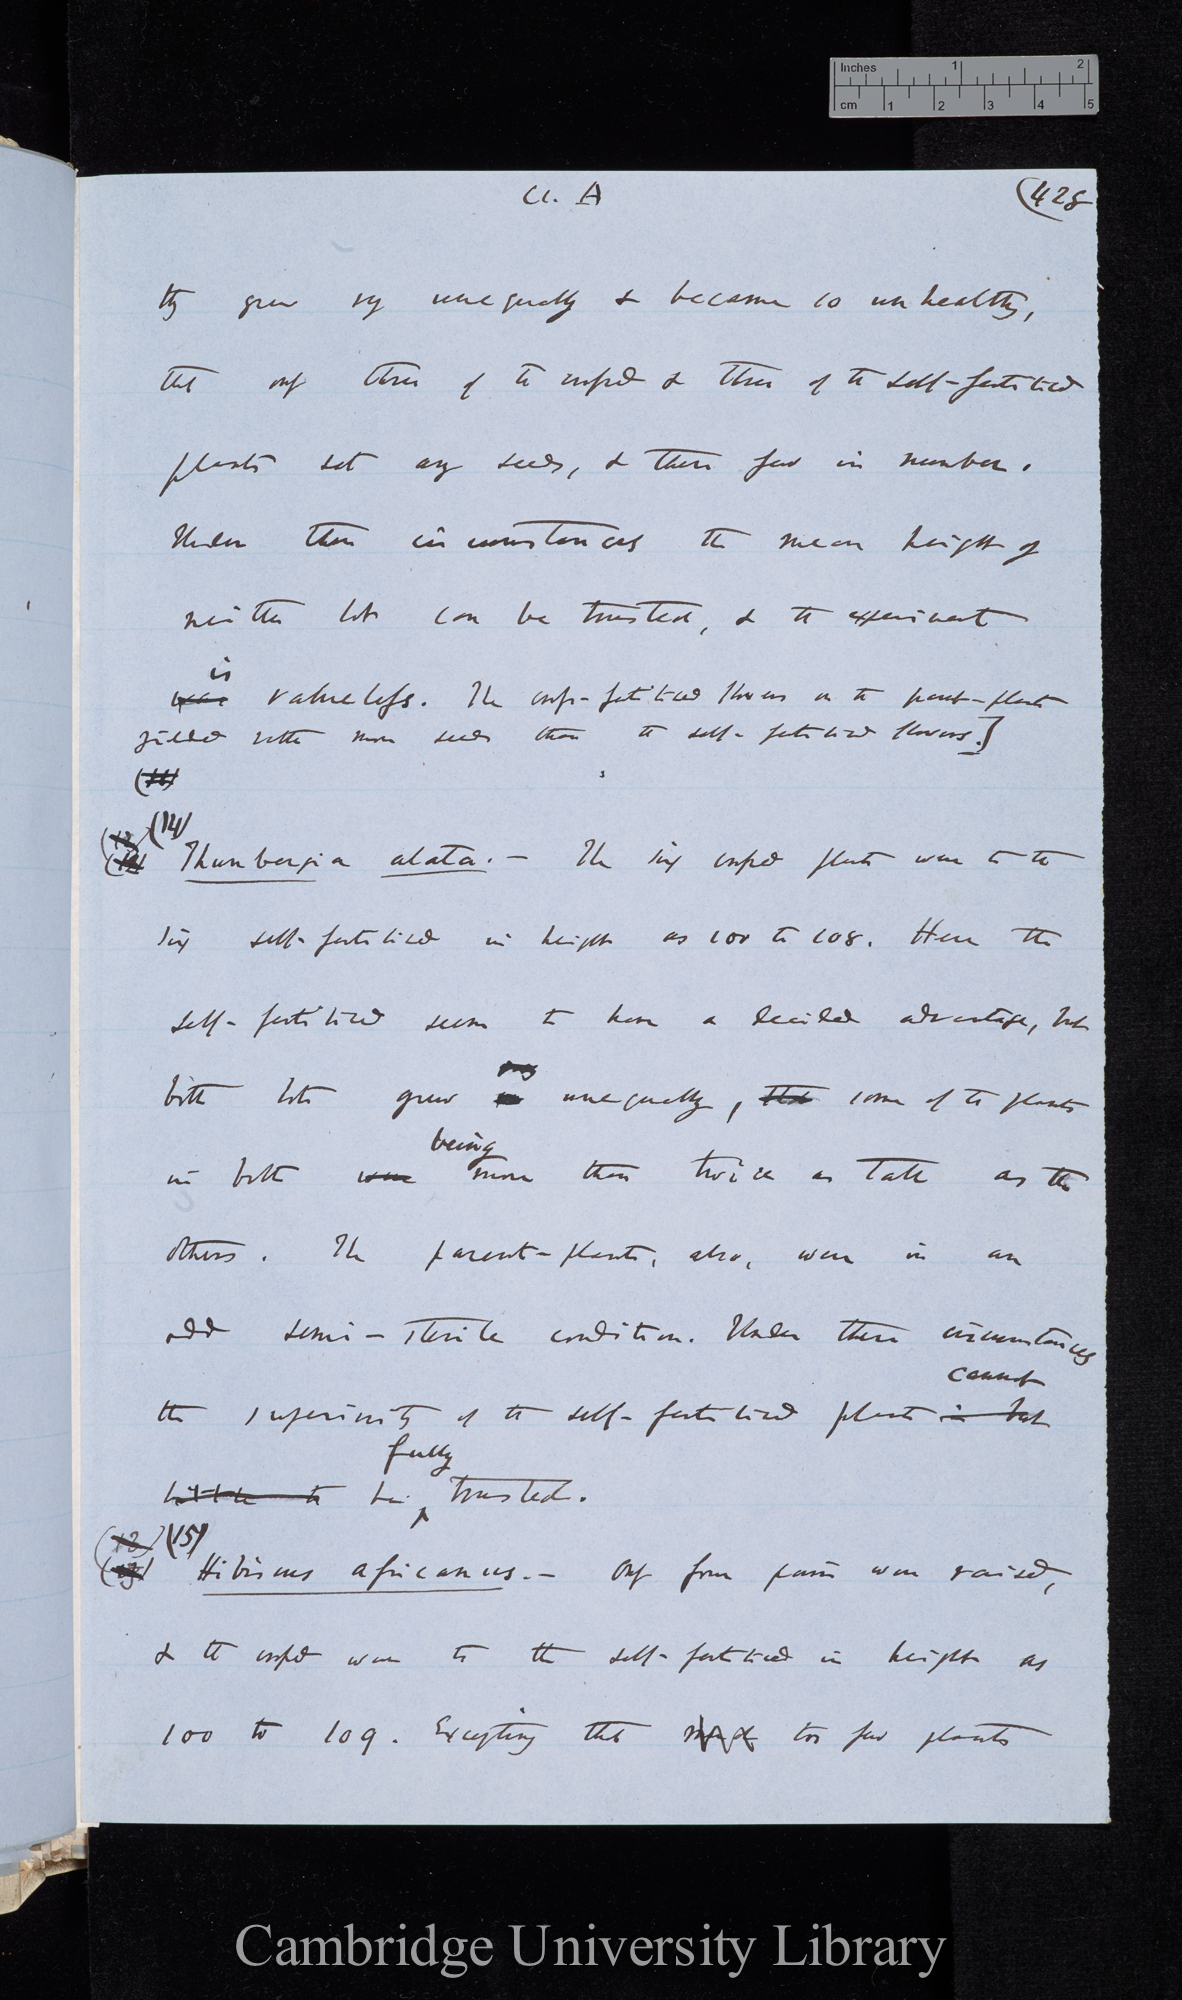 Inches 1 2
cm 1 2 3 4 5
Cl. A (428
they grew very unequally & became so unhealthy,
that only three of the crossed & three of the self-fertilised
plants set any seeds, & these few in number.
Under these circumstances the mean height of
neither lots can be trusted, & the experiment
is
was valueless. The cross-fertilised flowers on the parent-plants
yielded rather more seeds than the self-fertilised flowers.]
(14)
Thunbergia alata. — The six crossed plants were to the
six self-fertilised in height as 100 to 108. Here the
self-fertilised seem to have a decided advantage, but
both lots grew unequally, that some of the plants
being
in both were more than twice as tall as the
others. The parent-plants, also, were in an
odd semi-sterile condition. Under these circumstances
cannot
the superiority of the self-fertilised plants is but
fully
little to be trusted.
(12) (15)
(13) Hibiscus africanus. — Only four pairs were raised,
& the crossed were to the self-fertilised in height as
100 to 109. Excepting that too few plants
Cambridge University Library